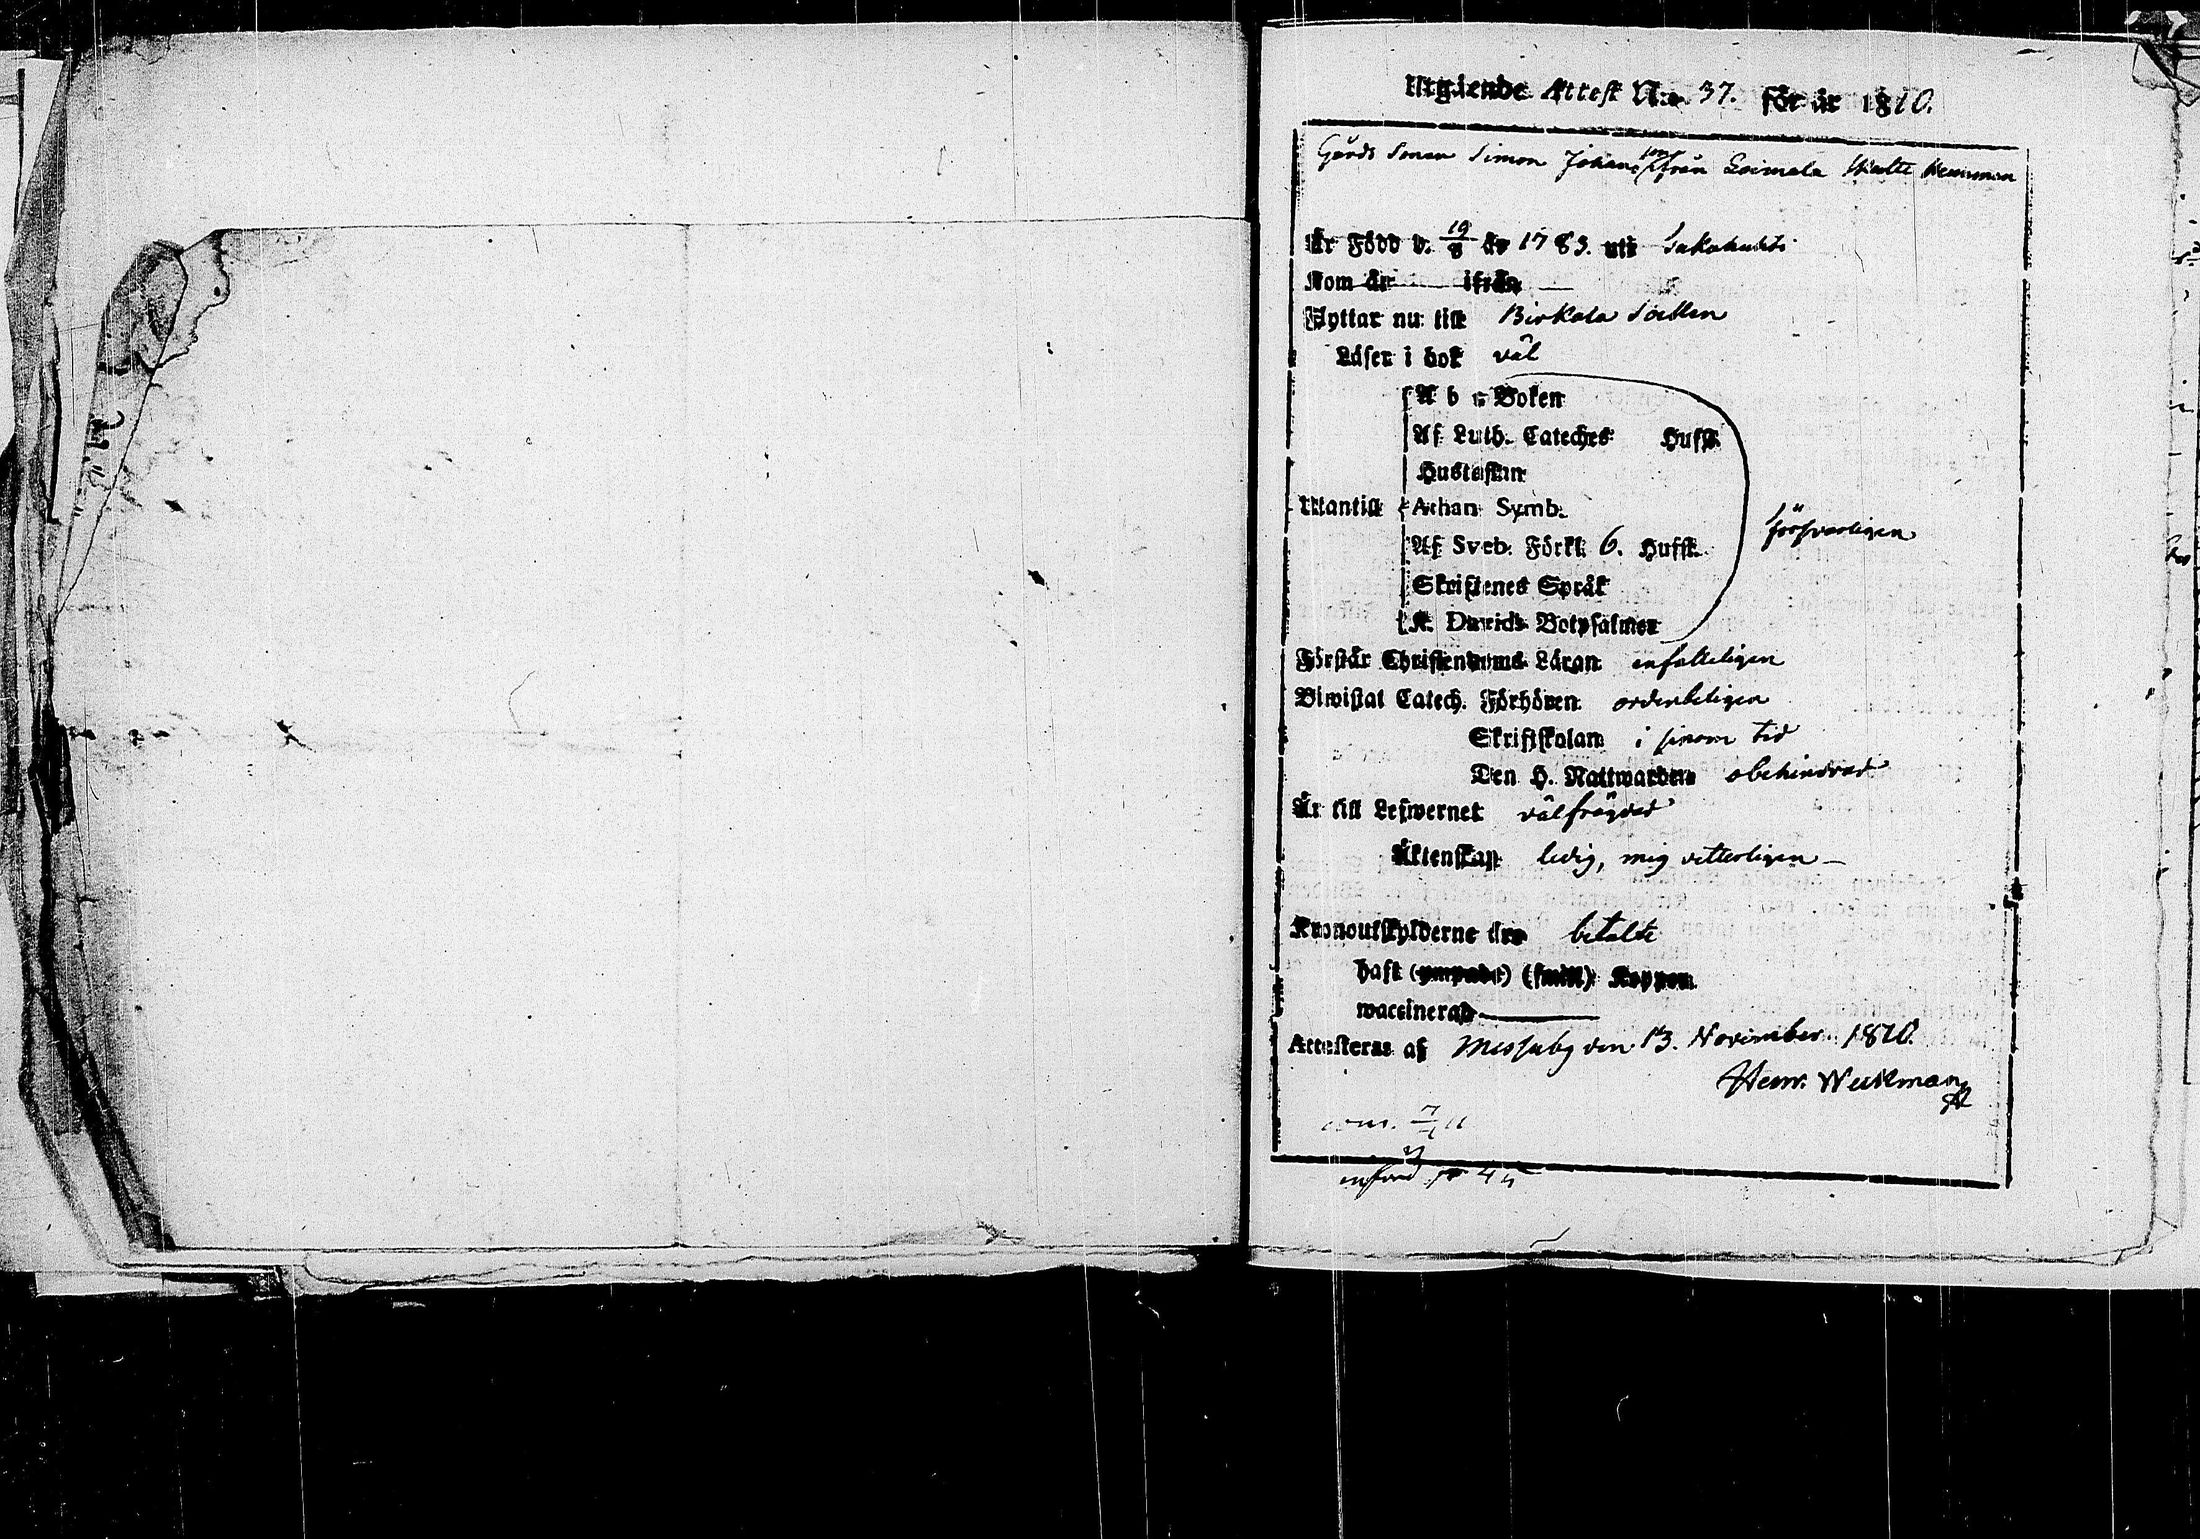 Utgående Attest N:o 37. för år 1810.
Gårds Sonen Simon Johans son ifrån Loimala
Är Född d. 19/8 år 1783. uti Lakahuhti
Kom år ifrån
Flyttar nu till Birkala Socken
Läser i bok väl
A b c Boken
Af Luth. Cateches Hufst.
Hustaflan
Utantill Athan. Symb.
Af Sveb. Förkl. 6. Hufst.
försvarligen
Skriftenes Språk
K. Davids Botpsalmer
Förstår Christendoms Läran enfalleligen
Biwistat Catech. Förhören ordenteligen
Skriftskolan i sinom tid
Den H. Nattwarden obehindrad
Är till Lefwernet välfrägdad
Äktenskap ledig, mig vetterligen
Kronoutskylderne äro betalte
haft (ympade) (smitt) Koppor
waccinerad
Attesteras af Messuby den 13. November 1810.
Henr. Weckman